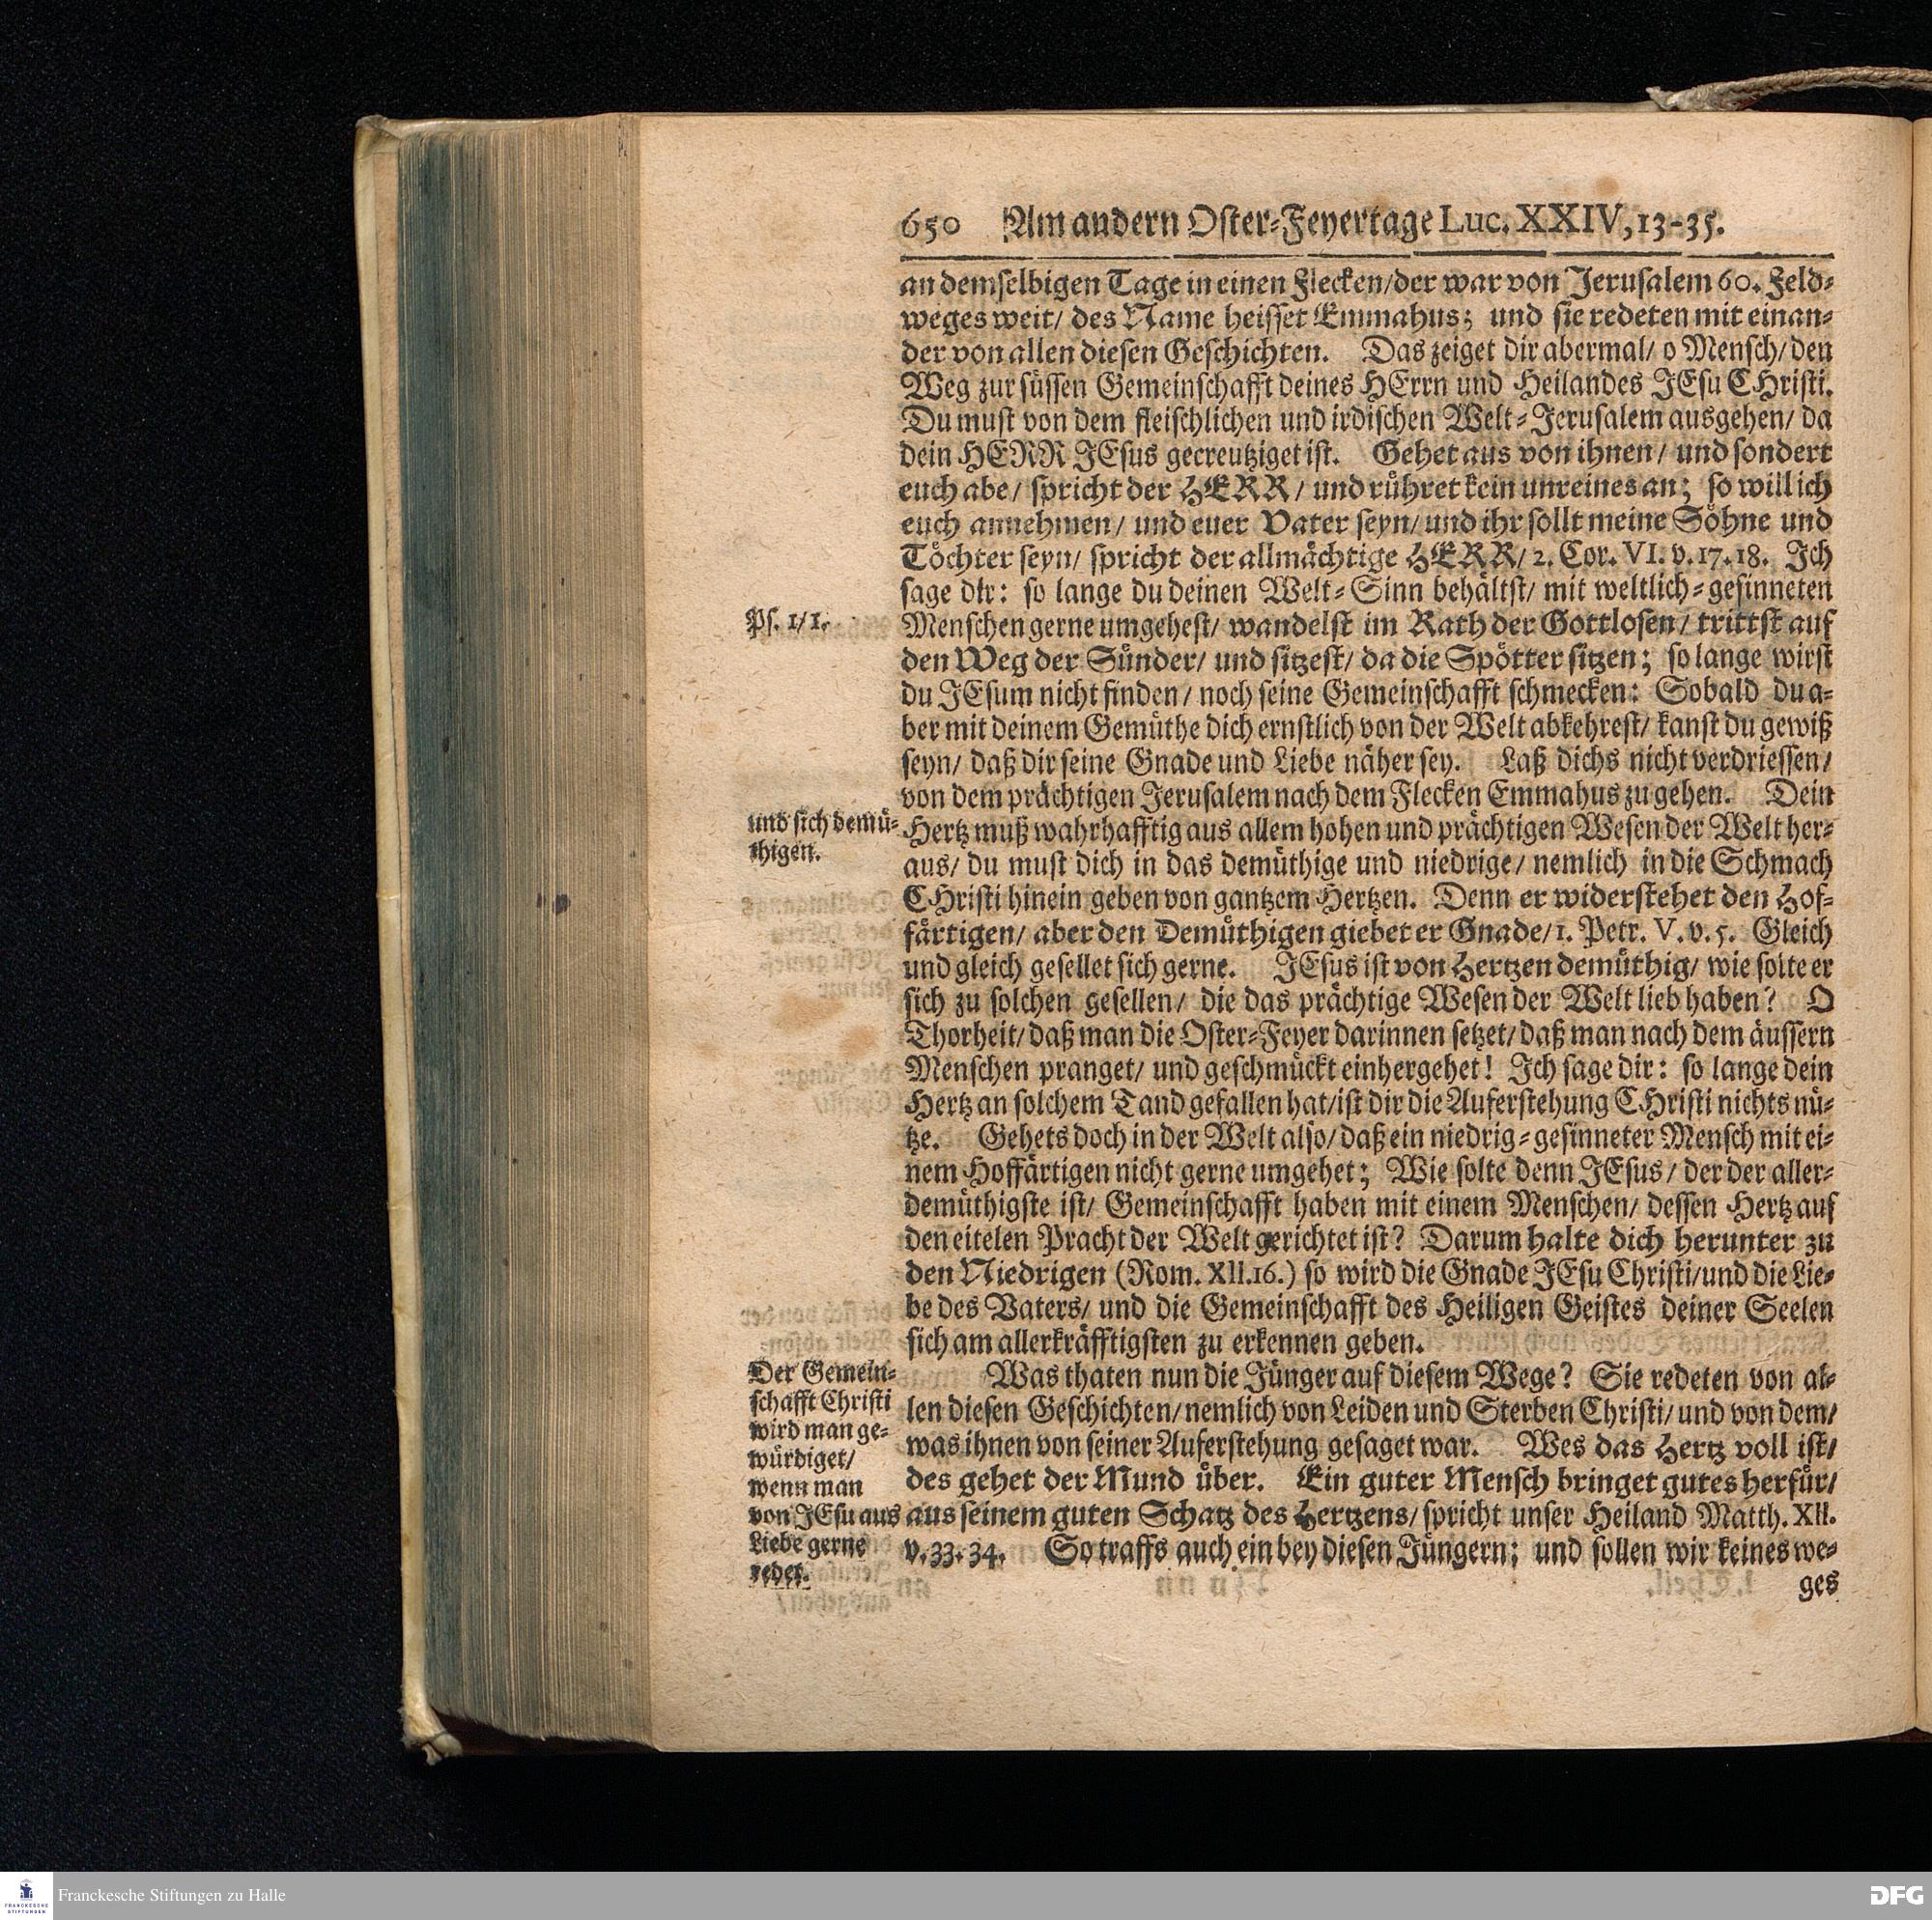 650 Am andern Oster-Feyertage Luc. XXIV, 13-35.
an demselbigen Tage in einen Flecken/ der war von Jerusalem 60. Feld-
weges weit/ des Name heisset Emmahus; und sie redeten mit einan-
der von allen diesen Geschichten. Das zeiget dir abermal/ o Mensch/ den
Weg zur süssen Gemeinschafft deines HErrn und Heilandes JEsu CHristi.
Du must von dem fleischlichen und irdischen Welt-Jerusalem ausgehen/ da
dein HERR JEsus gecreutziget ist. Gehet aus von ihnen/ und sondert
euch abe/ spricht der HERR/ und rühret kein unreines an; so will ich
euch annehmen/ und euer Vater seyn/ und ihr sollt meine Söhne und
Töchter seyn/ spricht der allmächtige HERR/ 2. Cor. VI. v. 17. 18. Ich
sage dir: so lange du deinen Welt-Sinn behältst/ mit weltlich-gesinneten
Ps. 1/1.
Menschen gerne umgehest/ wandelst im Rath der Gottlosen/ trittst auf
den Weg der Sünder/ und sitzest/ da die Spötter sitzen; so lange wirst
du JEsum nicht finden/ noch seine Gemeinschafft schmecken: Sobald du a-
ber mit deinem Gemüthe dich ernstlich von der Welt abkehrest/ kanst du gewiß
seyn/ daß dir seine Gnade und Liebe näher sey. Laß dichs nicht verdriessen/
von dem prächtigen Jerusalem nach dem Flecken Emmahus zu gehen. Dein
und sich demü-
thigen.
Hertz muß wahrhafftig aus allem hohen und prächtigen Wesen der Welt her-
aus/ du must dich in das demüthige und niedrige/ nemlich in die Schmach
CHristi hinein geben von gantzem Hertzen. Denn er widerstehet den Hof-
färtigen/ aber den Demüthigen giebet er Gnade/ 1. Petr. V. v. 5. Gleich
und gleich gesellet sich gerne. JEsus ist von Hertzen demüthig/ wie solte er
sich zu solchen gesellen/ die das prächtige Wesen der Welt lieb haben? O
Thorheit/ daß man die Oster-Feyer darinnen setzet/ daß man nach dem äussern
Menschen pranget/ und geschmückt einhergehet! Ich sage dir: so lange dein
Hertz an solchem Tand gefallen hat/ ist dir die Auferstehung CHristi nichts nü-
tze. Gehets doch in der Welt also/ daß ein niedrig-gesinneter Mensch mit ei-
nem Hoffärtigen nicht gerne umgehet; Wie solte denn JEsus/ der der aller-
demüthigste ist/ Gemeinschafft haben mit einem Menschen/ dessen Hertz auf
den eitelen Pracht der Welt gerichtet ist? Darum halte dich herunter zu
den Niedrigen (Rom. XII. 16.) so wird die Gnade JEsu Christi/ und die Lie-
be des Vaters/ und die Gemeinschafft des Heiligen Geistes deiner Seelen
sich am allerkräfftigsten zu erkennen geben.
Der Gemein-
schafft Christi
wird man ge-
würdiget/
wenn man
von JEsu aus
Liebe gerne
redet.
Was thaten nun die Jünger auf diesem Wege? Sie redeten von al-
len diesen Geschichten/ nemlich von Leiden und Sterben Christi/ und von dem/
was ihnen von seiner Auferstehung gesaget war. Wes das Hertz voll ist/
des gehet der Mund über. Ein guter Mensch bringet gutes herfür/
aus seinem guten Schatz des Hertzens/ spricht unser Heiland Matth. XII.
v. 33. 34. So traffs auch ein bey diesen Jüngern; und sollen wir keineswe-
ges
Franckesche Stiftungen zu Halle
FRANCKESCHE
STIFTUNGEN
DFG